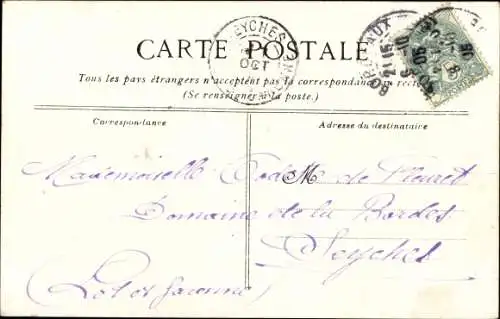 SEYCHES
OCT
BORDEAUX
CARTE POSTALE
Tous les pays étrangers n'acceptent pas la correspondance au recto
(Se renseigner à la poste.)
Correspondance
Adresse du destinataire
Mademoiselle M de
Domaine de la Bordes
Seyches
(Lot et Garonne)